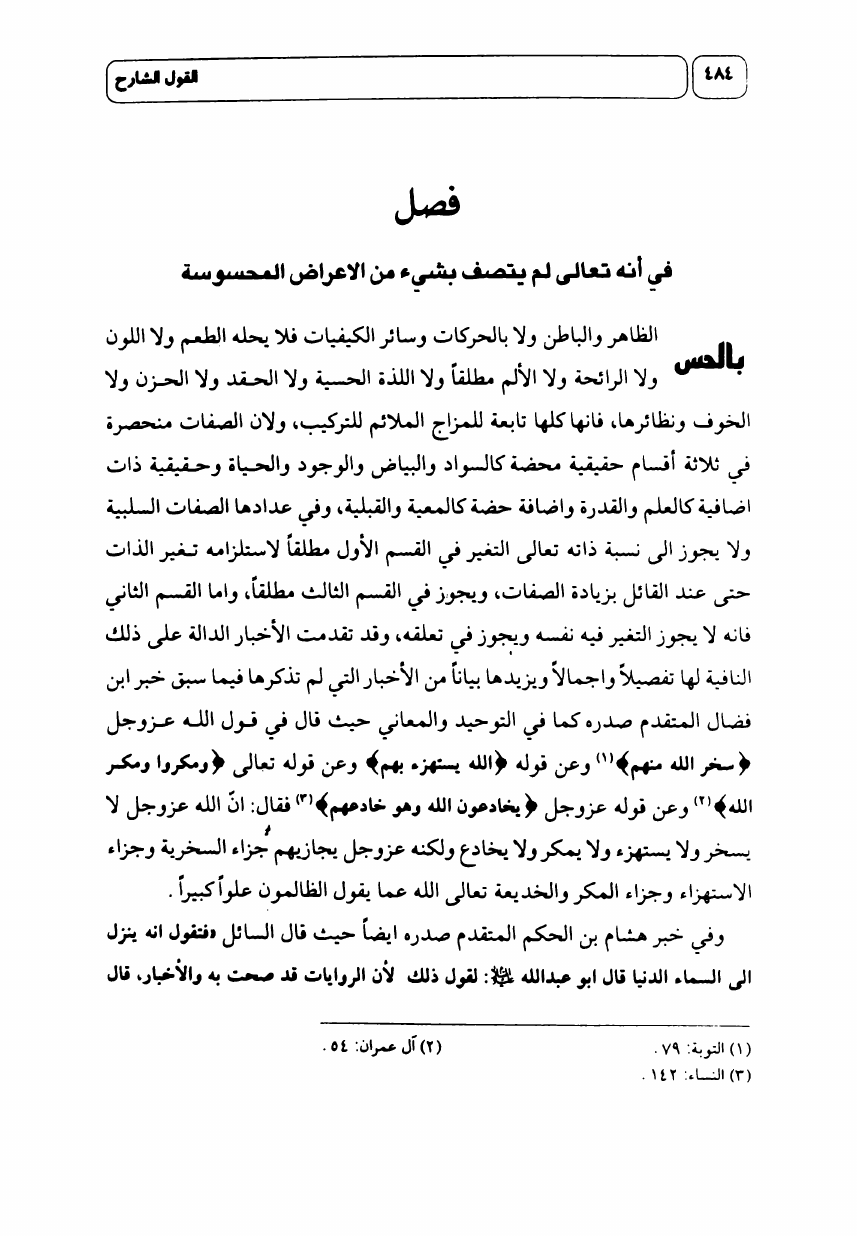 ٤٨٤
القول الشارح
فصل
في أنه تعالى لم يتصف بشيء من الاعراض المحسوسة
بالحس الظاهر والباطن ولا بالحركات وسائر الكيفيات فلا يحله الطعم ولا اللون
ولا الرائحة ولا الألم مطلقاً ولا اللذة الحسية ولا الحقد ولا الحزن ولا
الخوف ونظائرها، فانها كلها تابعة للمزاج الملائم للتركيب، ولان الصفات منحصرة
في ثلاثة أقسام حقيقية محضة كالسواد والبياض والوجود والحياة وحقيقية ذات
اضافية كالعلم والقدرة واضافة حضة كالمعية والقبلية، وفي عدادها الصفات السلبية
ولا يجوز الى نسبة ذاته تعالى التغير في القسم الأول مطلقاً لاستلزامه تغير الذات
حتى عند القائل بزيادة الصفات، ويجوز في القسم الثالث مطلقاً، واما القسم الثاني
فانه لا يجوز التغير فيه نفسه ويجوز في تعلقه، وقد تقدمت الأخبار الدالة على ذلك
النافية لها تفصيلاً واجمالاً ويزيدها بياناً من الأخبار التي لم تذكرها فيما سبق خبر ابن
فضال المتقدم صدره كما في التوحيد والمعاني حيث قال في قول الله عزوجل
﴿سخر الله منهم﴾(١) وعن قوله ﴿الله يستهزء بهم﴾ وعن قوله تعالى ﴿ومكروا ومكر
الله﴾(٢) وعن قوله عزوجل ﴿يخادعون الله وهو خادعهم﴾(٣) فقال: انّ الله عزوجل لا
يسخر ولا يستهزء ولا يمكر ولا يخادع ولكنه عزوجل يجازيهم جزاء السخرية وجزاء
الاستهزاء وجزاء المكر والخديعة تعالى الله عما يقول الظالمون علواً كبيراً .
وفي خبر هشام بن الحكم المتقدم صدره ايضاً حيث قال السائل «فتقول انه ينزل
الى السماء الدنيا قال ابو عبدالله عليه السلام: لقول ذلك لأن الروايات قد صحت به والأخبار، قال
(١) التوبة: ٧٩ .
(٢) آل عمران: ٥٤ .
(٣) النساء: ١٤٢ .